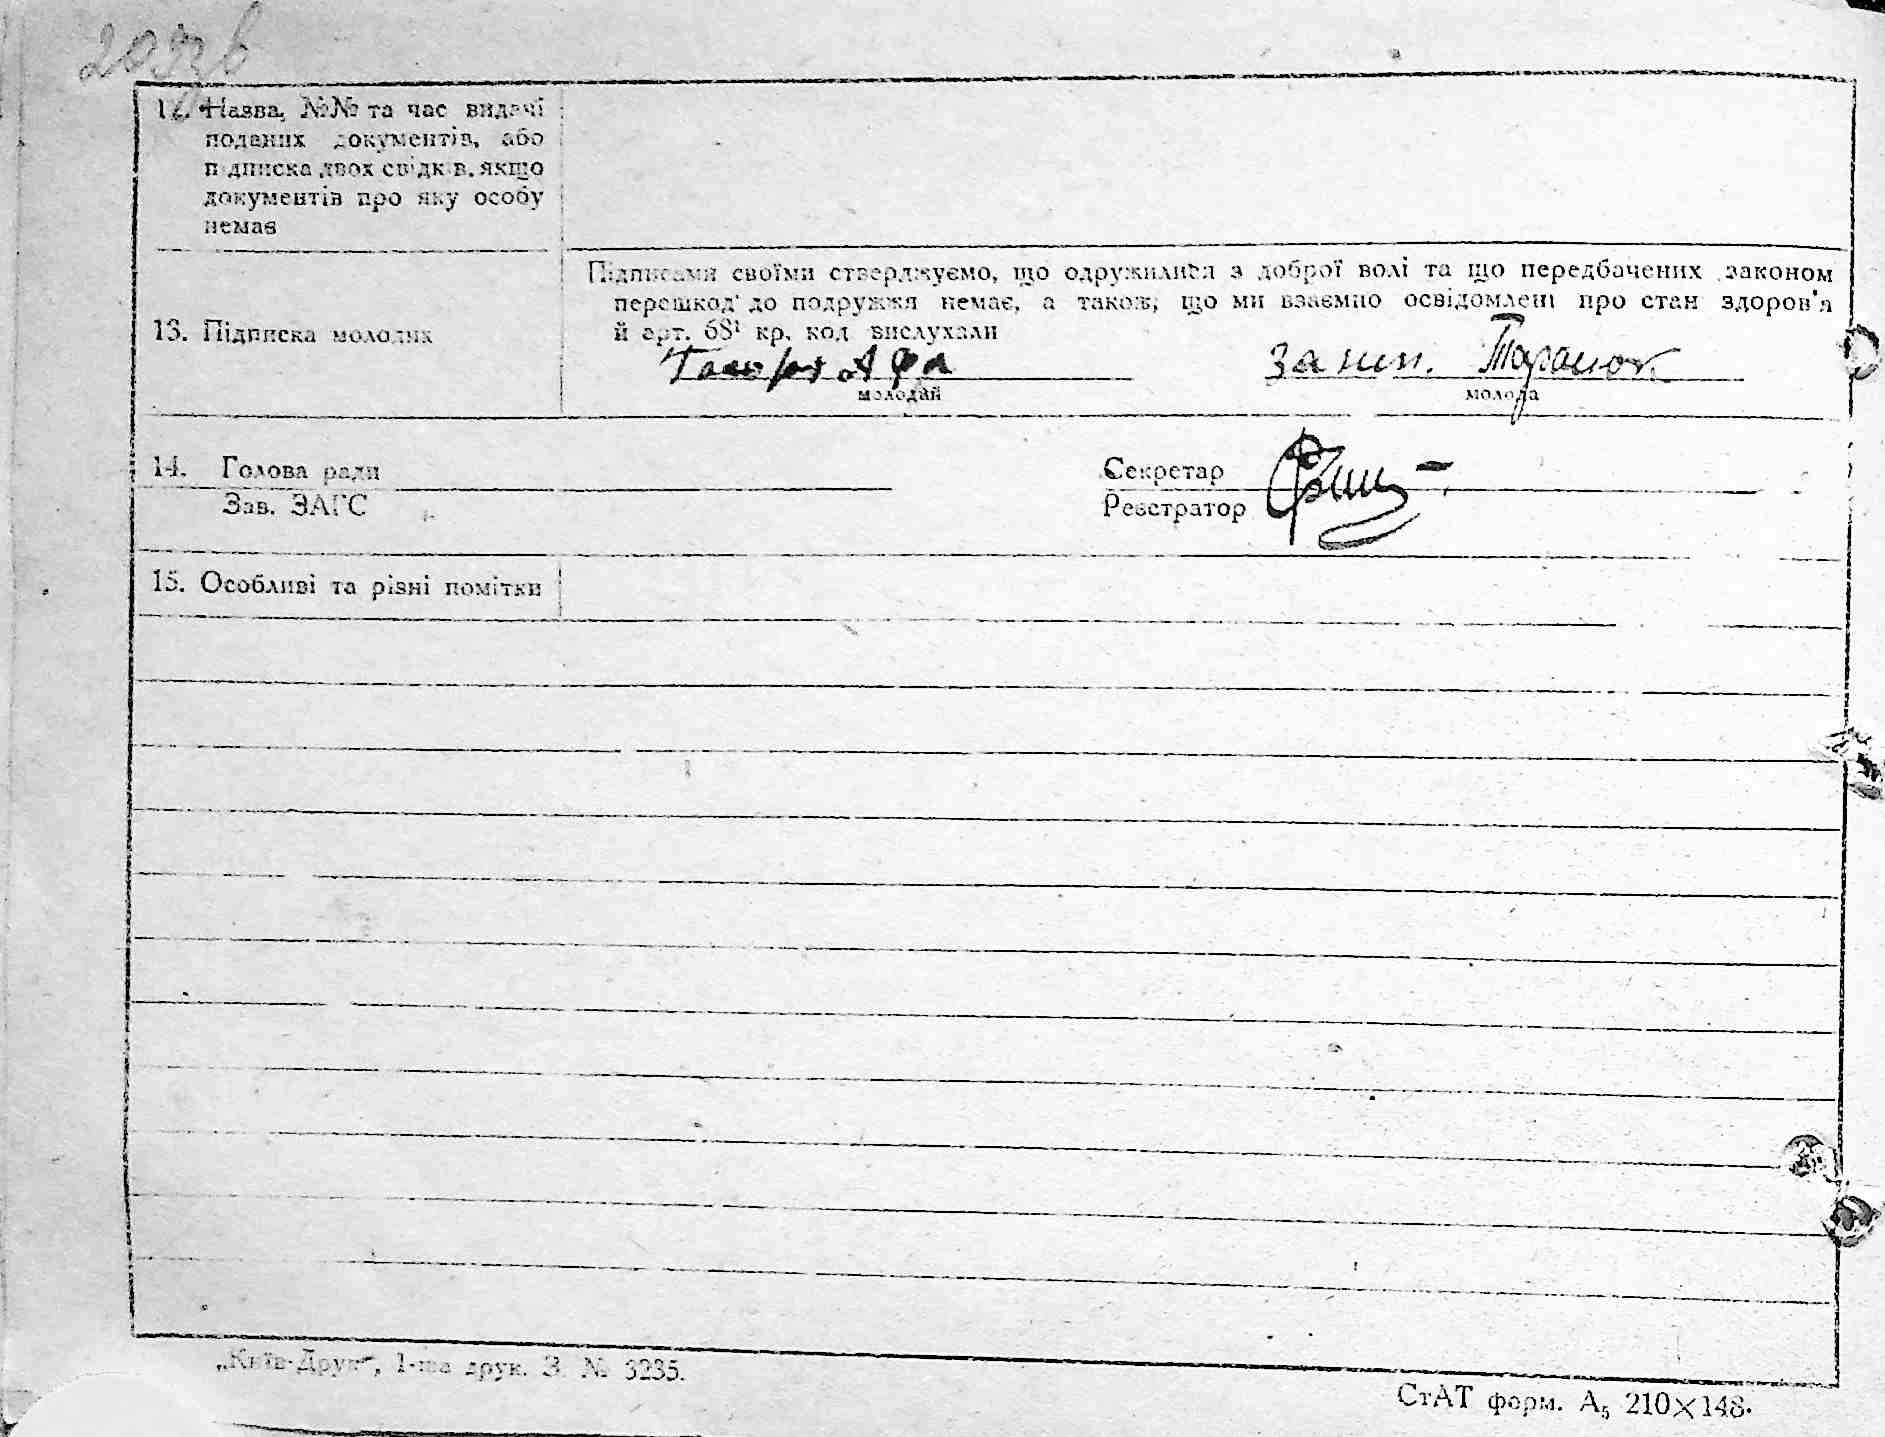 12. Назва, №№ та час видачі
поданих документів, або
підписка двох свідків, якщо
документів про яку особу
немає
Підписами своїми стверджуємо, що одружилися з доброї волі та що передбачених законом
перешкод до подружжя немає, а також, що ми взаємно освідомлені про стан здоров'я
й арт. 68¹ кр. код вислухали
13. Підписка молодих
молодий
молода
14. Голова ради
Секретар
Зав. ЗАГС
Реєстратор
15. Особливі та різні помітки
„Київ-Друк“, 1-ша друк. З. № 3235.
СтАТ форм. А₅ 210×148.